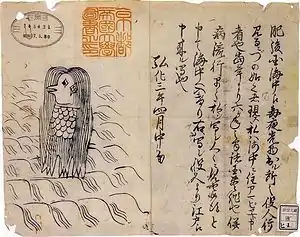 肥後国海中え毎夜光物出ル所之役人行
見るニづの如之者現ス私ハ海中ニ住アマビヱト申
者也當年より六ヶ年之間諸国豊作也併
病流行早々私ヲ写シ人々ニ見セ候得と
申て海中へ入けり右ハ写シ役人より江戸え
申来ル写也
弘化三年四月中旬
京都
帝國大學
圖書之印